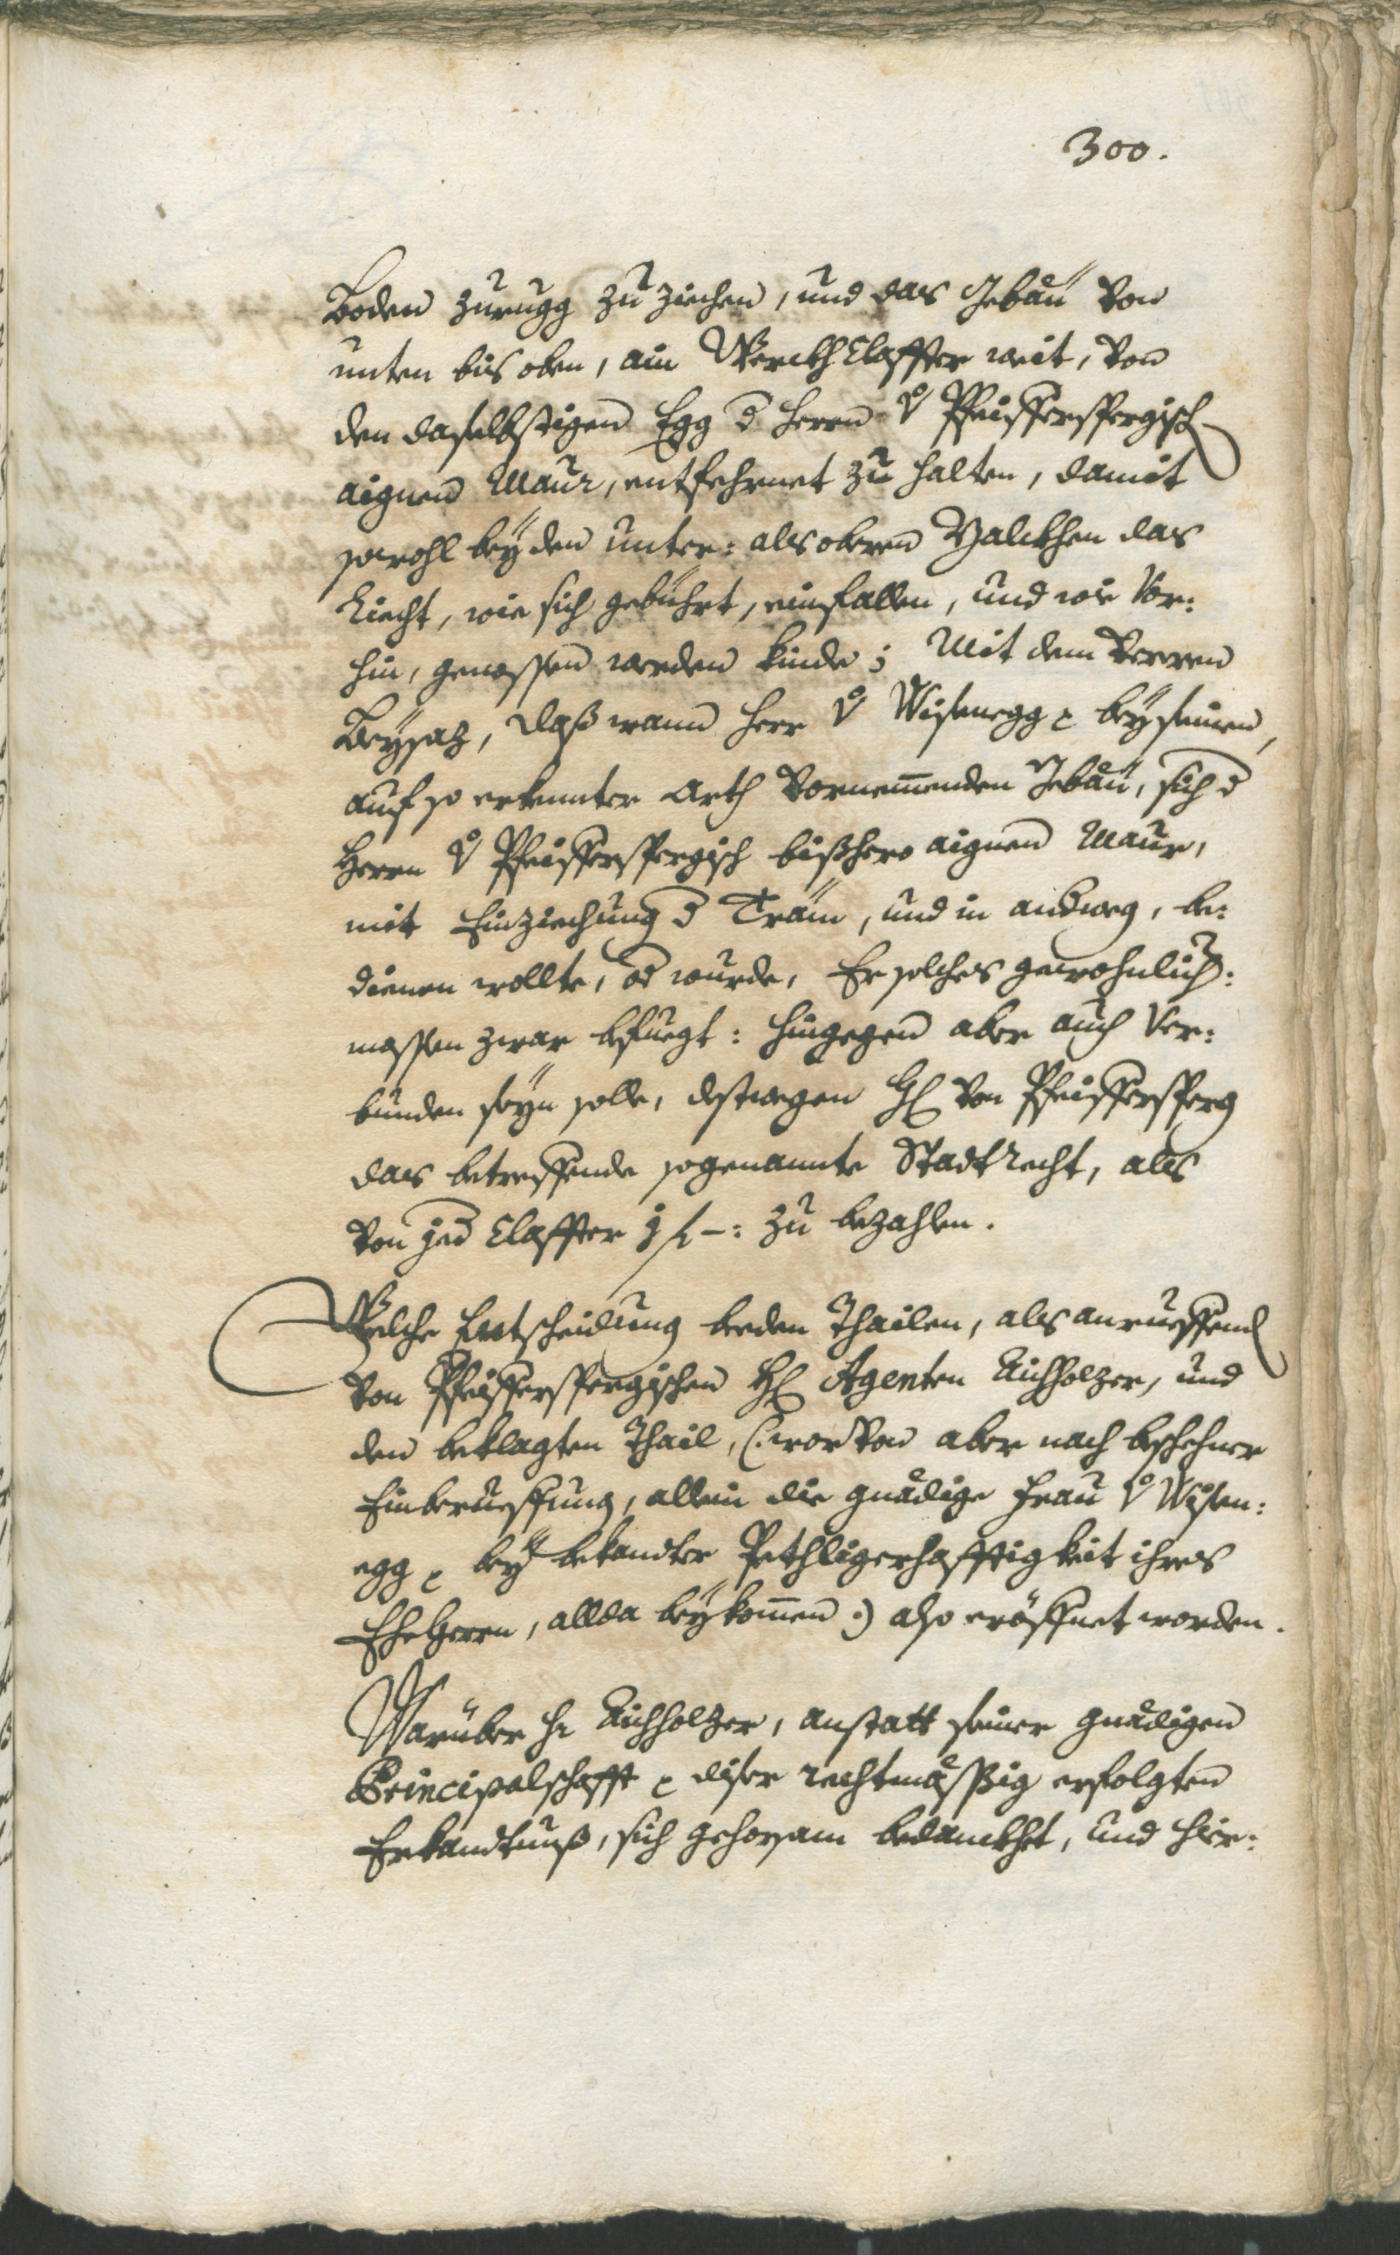 300.
Boden zurugg zu ziechen, und das Gebäu von
unten bis oben, ain Werckh Claffter weit, von
den daselbstigen Egg d Herrn v Pfeifferspergisch
aignen Maur, entfehrnet zu halten, damit
sowohl bey den unter: als obern Palckhen das
Liecht, wie sich gebührt, einfallen, und wie vor:
hin, genossen werden künde; Mit dem verern
Beysaz, daß wann Herr v Wisenegg bey seinem,
auf so erkennter Arth vornemmenden Gebäu, sich d
Herrn v Pfeifferspergisch bißhero aignen Maur,
mit Einziechung d Träm, und in andweg, be:
dienen wollte, od wurde, Er solches gewohnlich:
massen zwar befuegt: hingegen aber auch ver:
bunden seyn solle, destwegen H von Pfeiffersperg
das betreffende sogenannte Stadtrecht, als
von jed Claffter 1 f –: zu bezahlen.
Welche Entscheidung beeden Thailen, als anrueffend
von Pfeifferspergischen H Agenten Aichholzer, und
den beklagten Thail, (:wovon aber nach beschehner
Einberueffung, allein die gnädige Frau v Wisen:
egg bey bekandter Pethligerhafftigkeit ihres
Eheherrn, allda beykommen:) also eröffnet worden.
Warüber Hr Aichholzer, anstatt seiner gnädigen
Principalschafft diser rechtmässig erfolgten
Erkandtnuß, sich gehorsam bedanckhet, und hier: